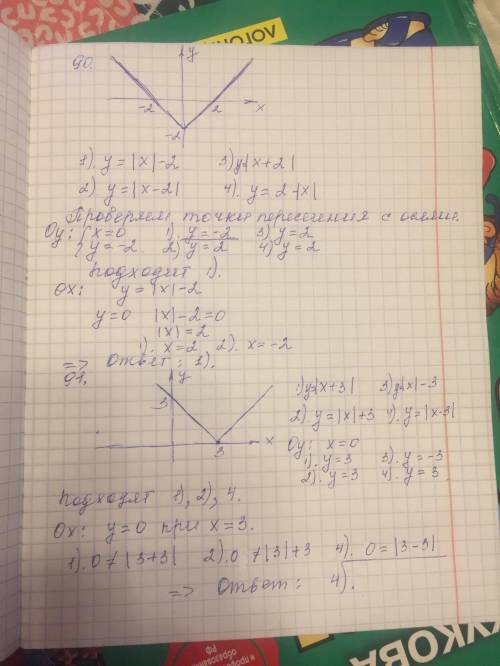 ЛОГО
90.
y
-2
2
x
-2
1). y = |x| - 2
3) y = |x + 2|
2) y = |x - 2|
4). y = 2 - |x|
Проверяем точки пересечения с осями.
Oy: { x = 0
y = -2.
1). y = -2
3) y = 2
2) y = 2
4) y = 2
подходит 1).
Ox: y = |x| - 2
y = 0 |x| - 2 = 0
|x| = 2
1). x = 2 2). x = -2
=> Ответ: 1).
91.
y
3
3
x
1) y = |x + 3|
3) y = |x| - 3
2). y = |x| + 3
4). y = |x - 3|
Oy: x = 0
1). y = 3
3). y = -3
2). y = 3
4). y = 3
подходят 1), 2), 4.
Ox: y = 0 при x = 3.
1). 0 ≠ |3 + 3| 2). 0 ≠ |3| + 3 4). 0 = |3 - 3|
=> Ответ: 4).
РФ
УКОВА